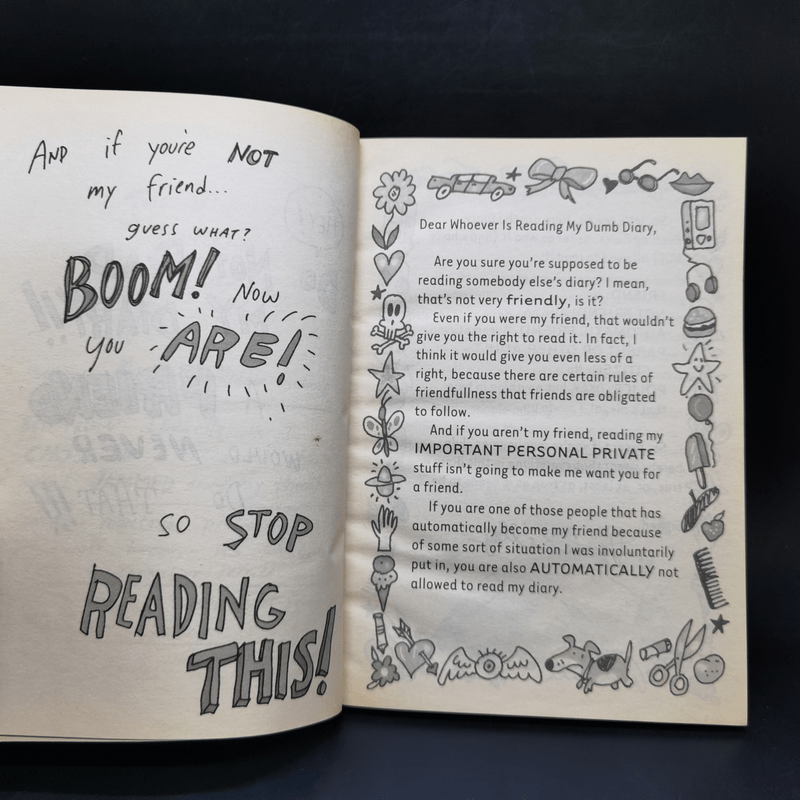 AND if you're NOT
my friend...
guess WHAT?
BOOM! NOW
you ARE!
SO STOP
READING
THIS!
Dear Whoever Is Reading My Dumb Diary,
Are you sure you're supposed to be
reading somebody else's diary? I mean,
that's not very friendly, is it?
Even if you were my friend, that wouldn't
give you the right to read it. In fact, I
think it would give you even less of a
right, because there are certain rules of
friendfullness that friends are obligated
to follow.
And if you aren't my friend, reading my
IMPORTANT PERSONAL PRIVATE
stuff isn't going to make me want you for
a friend.
If you are one of those people that has
automatically become my friend because
of some sort of situation I was involuntarily
put in, you are also AUTOMATICALLY not
allowed to read my diary.